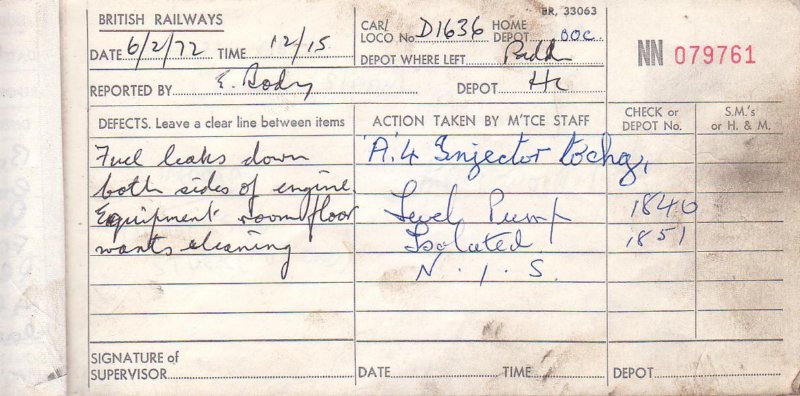 BRITISH RAILWAYS
DATE 6/2/72 TIME 12/15
CAR/
LOCO No D1636 HOME
DEPOT BOC
BR, 33063
DEPOT WHERE LEFT
NN 079761
REPORTED BY E. Body
DEPOT
DEFECTS. Leave a clear line between items
ACTION TAKEN BY M'TCE STAFF
CHECK or
DEPOT No.
S.M.'s
or H. & M.
Fuel leaks down
both sides of engine.
Equipment room floor
wants cleaning
'A' 4 Injector
Level Pump
Isolated
N. I. S.
1840
1851
SIGNATURE of
SUPERVISOR
DATE TIME
DEPOT